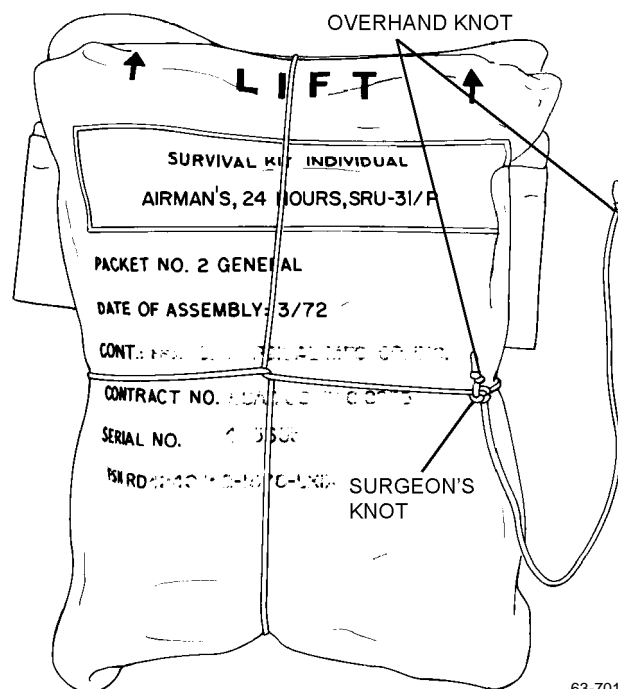 OVERHAND KNOT
LIFT
SURVIVAL KIT INDIVIDUAL
AIRMAN'S, 24 HOURS, SRU-31/P
PACKET NO. 2 GENERAL
DATE OF ASSEMBLY: 3/72
CONT.:
CONTRACT NO.
SERIAL NO.
SURGEON'S
KNOT
63-701